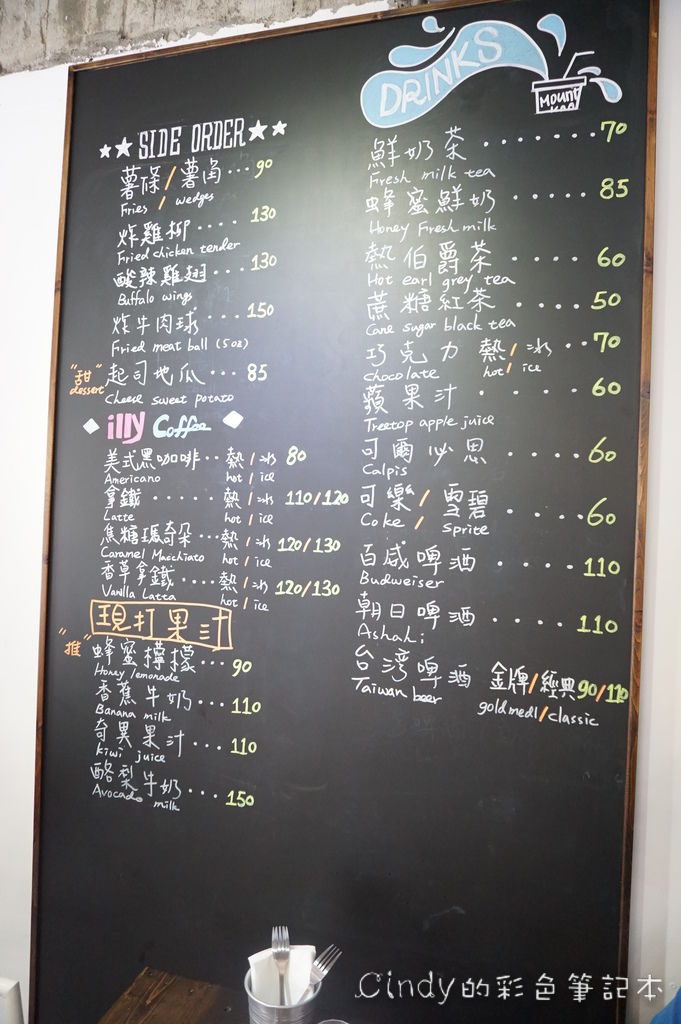 SIDE ORDER
薯條/薯角···90
Fries / wedges
炸雞柳····130
Fried chicken tender
酸辣雞翅···130
Buffalo wings
炸牛肉球····150
Fried meat ball (5oz)
"甜" 起司地瓜···85
dessert Cheese sweet potato
illy Coffee
美式黑咖啡··熱/冰 80
Americano hot / ice
拿鐵······熱/冰 110/120
Latte hot / ice
焦糖瑪奇朵··熱/冰 120/130
Caramel Macchiato hot / ice
香草拿鐵····熱/冰 120/130
Vanilla Latta hot / ice
現打果汁
"推" 蜂蜜檸檬···90
Honey lemonade
香蕉牛奶···110
Banana milk
奇異果汁···110
kiwi juice
酪梨牛奶···150
Avocado milk
DRINKS
MOUNT
鮮奶茶·······70
Fresh milk tea
蜂蜜鮮奶·····85
Honey Fresh milk
熱伯爵茶·····60
Hot earl grey tea
蔗糖紅茶·····50
Cane sugar black tea
巧克力 熱/冰··70
chocolate hot / ice
蘋果汁·····60
Treetop apple juice
可爾必思····60
Calpis
可樂/雪碧····60
Coke / Sprite
百威啤酒·····110
Budweiser
朝日啤酒·····110
Ashahi
台灣啤酒 金牌/經典90/110
Taiwan beer gold medl/classic
Cindy的彩色筆記本